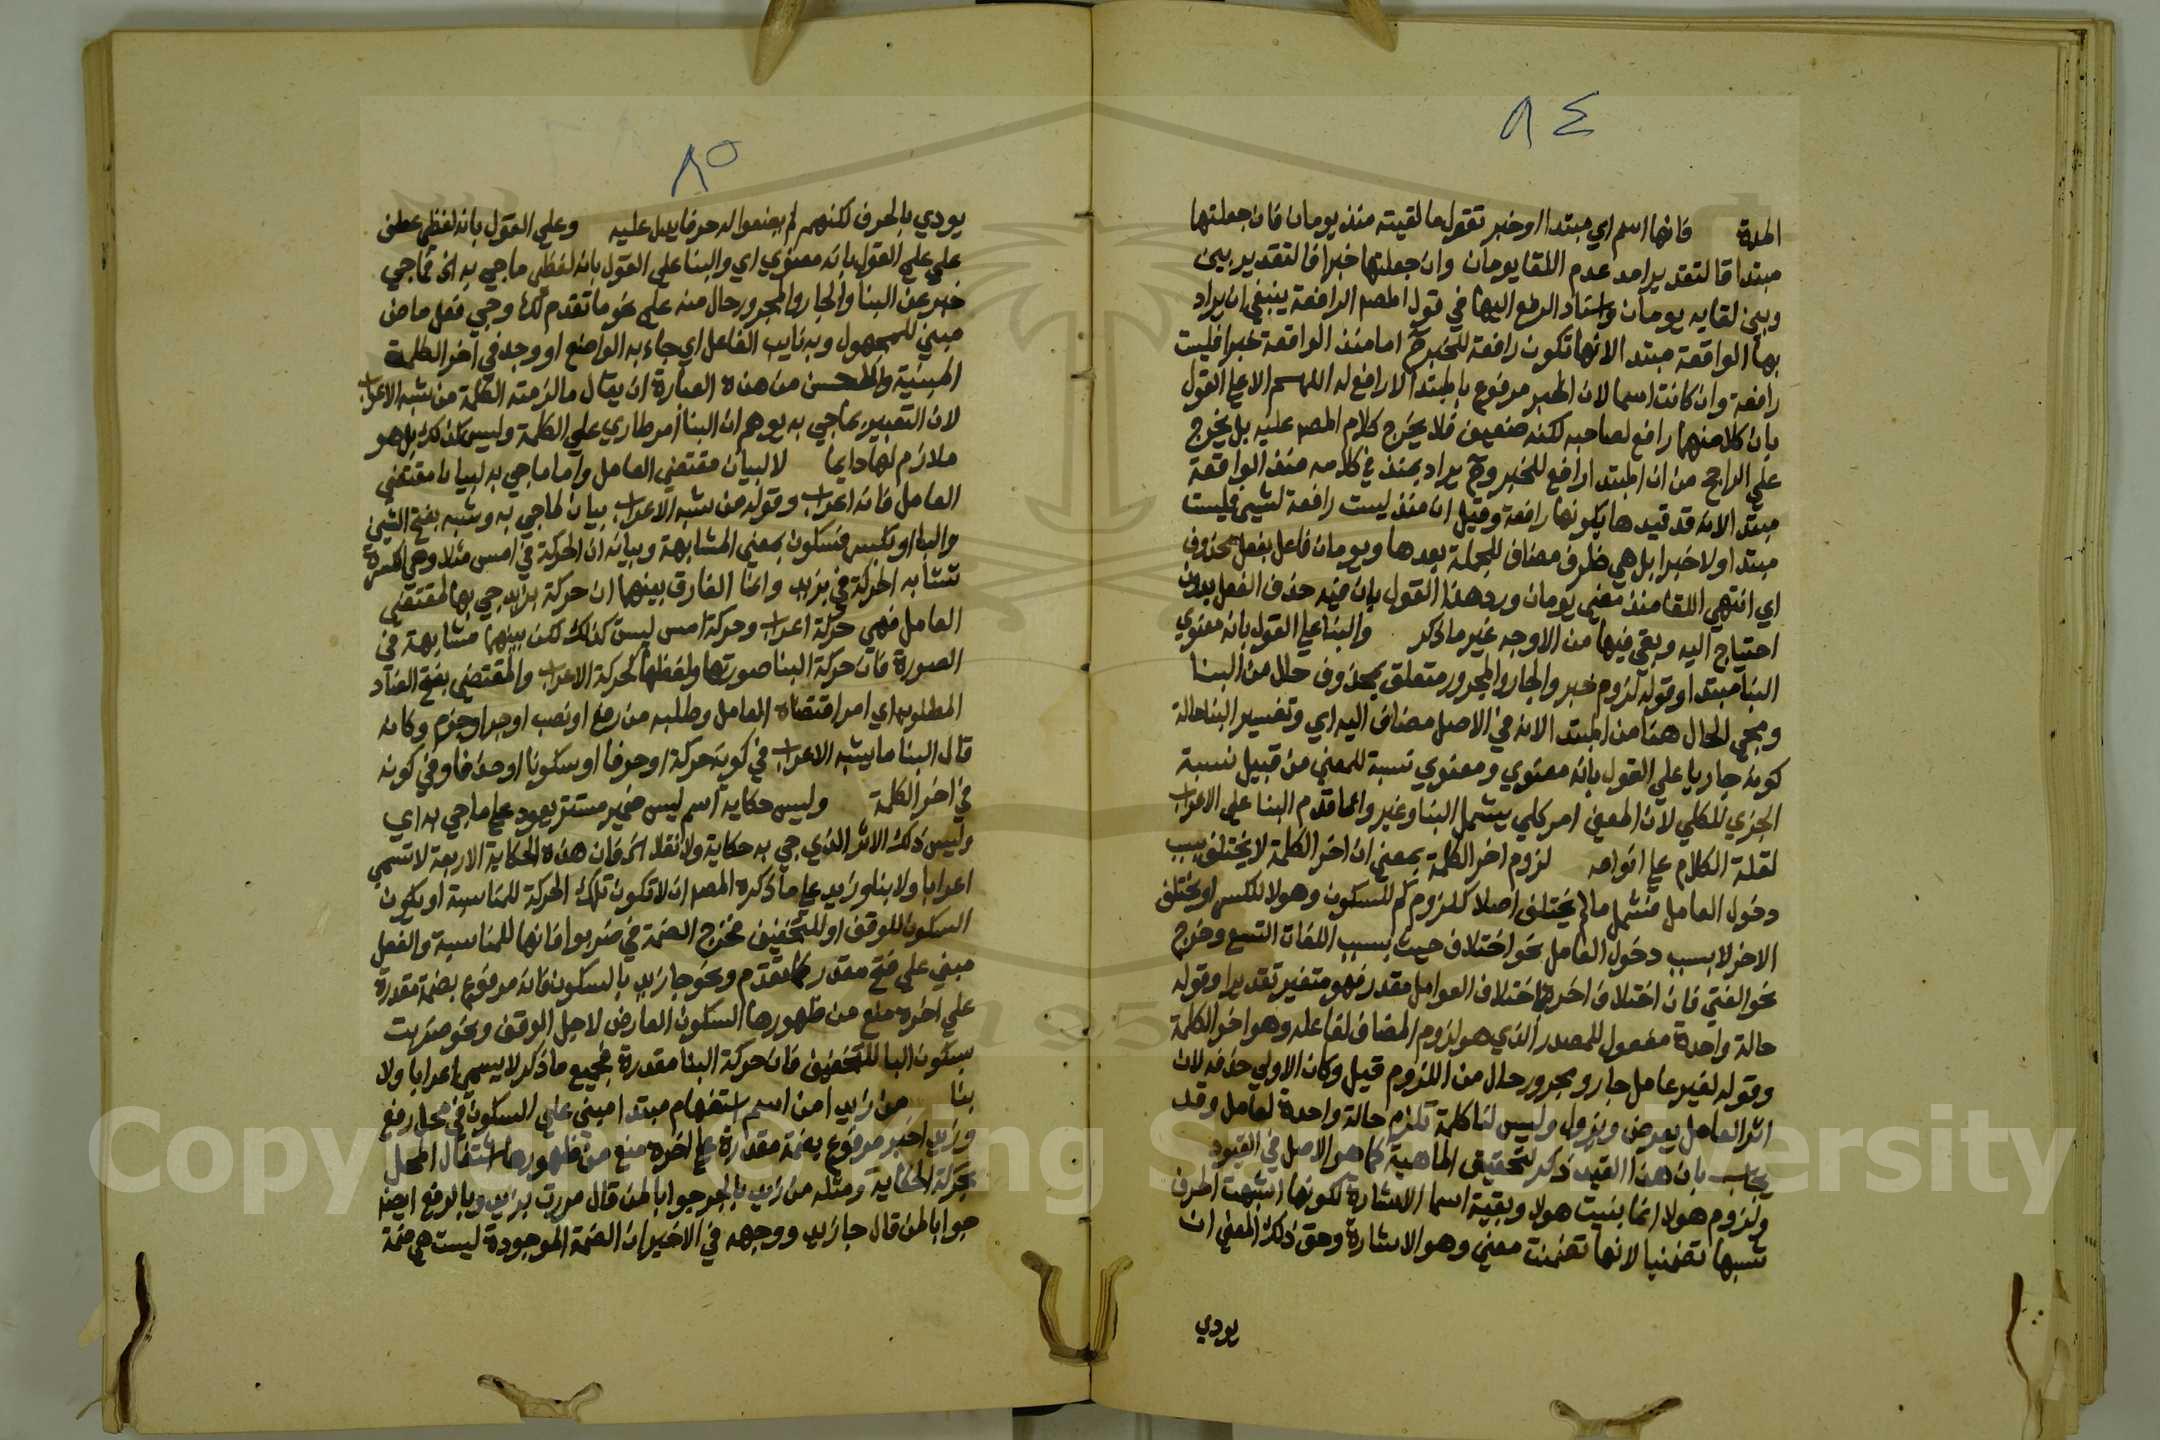 ٨٤
المدة فانها اسم اي مبتدا او خبر تقول ما لقيته منذ يومان فان جعلتها
مبتدا فالتقدير امد عدم اللقا يومان وان جعلتها خبرا فالتقدير بيني
وبين لقايه يومان واسناد الرفع اليها في قول المصه الرافعة ينبغي ان يراد
بها الواقعة مبتدا لانها تكون رافعة للخبر ح اما منذ الواقعة خبرا فليست
رافعة وان كانت اسما لان الخبر مرفوع بالمبتدا لا رافع له اللهم الا علي القول
بان كلا منهما رافع لصاحبه لكنه ضعيف فلا يخرج كلام المصه عليه بل يخرج
علي الراجح من ان المبتدا رافع للخبر وح يراد بمنذ في كلامه منذ الواقعة
مبتدا لانه قد قيدها بكونها رافعة وقيل ان منذ ليست رافعة لشيء فليست
مبتدا ولا خبرا بل هي ظرف مضاف للجملة بعدها ويومان فاعل بفعل محذوف
اي انتهي اللقا منذ مضي يومان ورد هذا القول بان فيه حذف الفعل بدون
احتياج اليه وبقي فيها من الاوجه غير ما ذكر والبنا علي القول بانه معنوي
البنا مبتدا وقوله لزوم خبر والجار والمجرور متعلق بمحذوف حال من البنا
ومجي الحال هنا من المبتدا لانه في الاصل مضاف اليه اي وتفسير البنا حالة
كونه جاريا علي القول بانه معنوي ومعنوي نسبة للمعني من قبيل نسبة
الجزي للكلي لان المعني امر كلي يشمل البنا وغيره وانما قدم البنا علي الاعراب
لقلة الكلام علي انواعه لزوم اخر الكلمة بمعني ان اخر الكلمة لا يختلف بسبب
دخول العامل فشمل ما لم يختلف اصلا كلزوم كم للسكون وهولا للكسر او يختلف
الاخر لا بسبب دخول العامل نحو اختلاف حيث بسبب اللغات التسع وخرج
نحو الفتي فان اختلاف اخرها اختلاف العوامل مقدر فهو متغير تقديرا وقوله
حالة واحدة مفعول للمصدر الذي هو لزوم المضاف لفاعله وهو اخر الكلمة
وقوله لغير عامل جار ومجرور حال من اللزوم قيل وكان الاولي حذفه لان
اثر العامل يعرض ويزول وليس لنا كلمة تلزم حالة واحدة لعامل وقد
يجاب بان هذا القيد ذكر لتحقيق الماهية كما هو الاصل في القيود
ولزوم هولا انما بنيت هولا وبقية اسما الاشارة لكونها اشبهت الحرف
شبها تضمنيا لانها تضمنت معني وهو الاشارة وحق ذلك المعني ان
يودي
٨٥
يودي بالحرف لكنهم لم يضعوا له حرفا يدل عليه وعلي القول بانه لفظي عطف
علي علي القول بانه معنوي اي والبنا علي القول بانه لفظي ما جي به الخ فما جي
خبر عن البنا والجار والمجرور حال منه علي نحو ما تقدم لك وجي فعل ماض
مبني للمجهول وبه نايب الفاعل اي جاء به الواضع او وجد في اخر الكلمة
المبنية والاحسن من هذه العبارة ان يقال ما لزمته الكلمة من شبه الاعراب
لان التعبير بما جي به يوهم ان البنا امر طاري علي الكلمة وليس كذلك بل هو
ملازم لها دايما لا لبيان مقتضي العامل واما ما جي به لبيان مقتضي
العامل فانه اعراب وقوله من شبه الاعراب بيان لما جي به وشبه بفتح الشين
والبا او بكسر فسكون بمعني المشابهة وبيانه ان الحركة في امس مثلا وهي الكسرة
تشابه الحركة في بزيد وانما الفارق بينهما ان حركة بزيد جي بها لمقتضي
العامل فهي حركة اعراب وحركة امس ليست كذلك لكن بينهما مشابهة في
الصورة فان حركة البنا صورتها ولفظها كحركة الاعراب والمقتضي بفتح الضاد
المطلوب اي امر اقتضاه العامل وطلبه من رفع او نصب او جر او جزم وكانه
قال البنا ما يشبه الاعراب في كونه حركة او حرفا او سكونا او حذفا وفي كونه
في اخر الكلمة وليس حكاية اسم ليس ضمير مستتر يعود علي ما جي به اي
وليس ذلك الاثر الذي جي به حكاية ولا نقلا الخ فان هذه الحكاية الاربعة لا تسمي
اعرابا ولا بنا ويزيد علي ما ذكره المصه ان لا تكون تلك الحركة للمناسبة او يكون
السكون للوقف او للتخفيف فخرج الضمة في ضربوا فانها للمناسبة والفعل
مبني علي فتح مقدر كما تقدم ونحو جا زيد بالسكون فانه مرفوع بضمة مقدرة
علي اخره منع من ظهورها السكون العارض لاجل الوقف ونحو ضربت
بسكون البا للتخفيف فان حركة البنا مقدرة فجميع ما ذكر لا يسمي اعرابا ولا
بنا من زيد امن اسم استفهام مبتدا مبني علي السكون في محل رفع
وزيد اخبر مرفوع بضمة مقدرة علي اخره منع من ظهورها اشتغال المحل
بحركة الحكاية ومثله من زيد بالجر جوابا لمن قال مررت بزيد وبالرفع ايضا
جوابا لمن قال جا زيد ووجهه في الاخير ان الضمة الموجودة ليست هي ضمة
Copyright © King Saud University